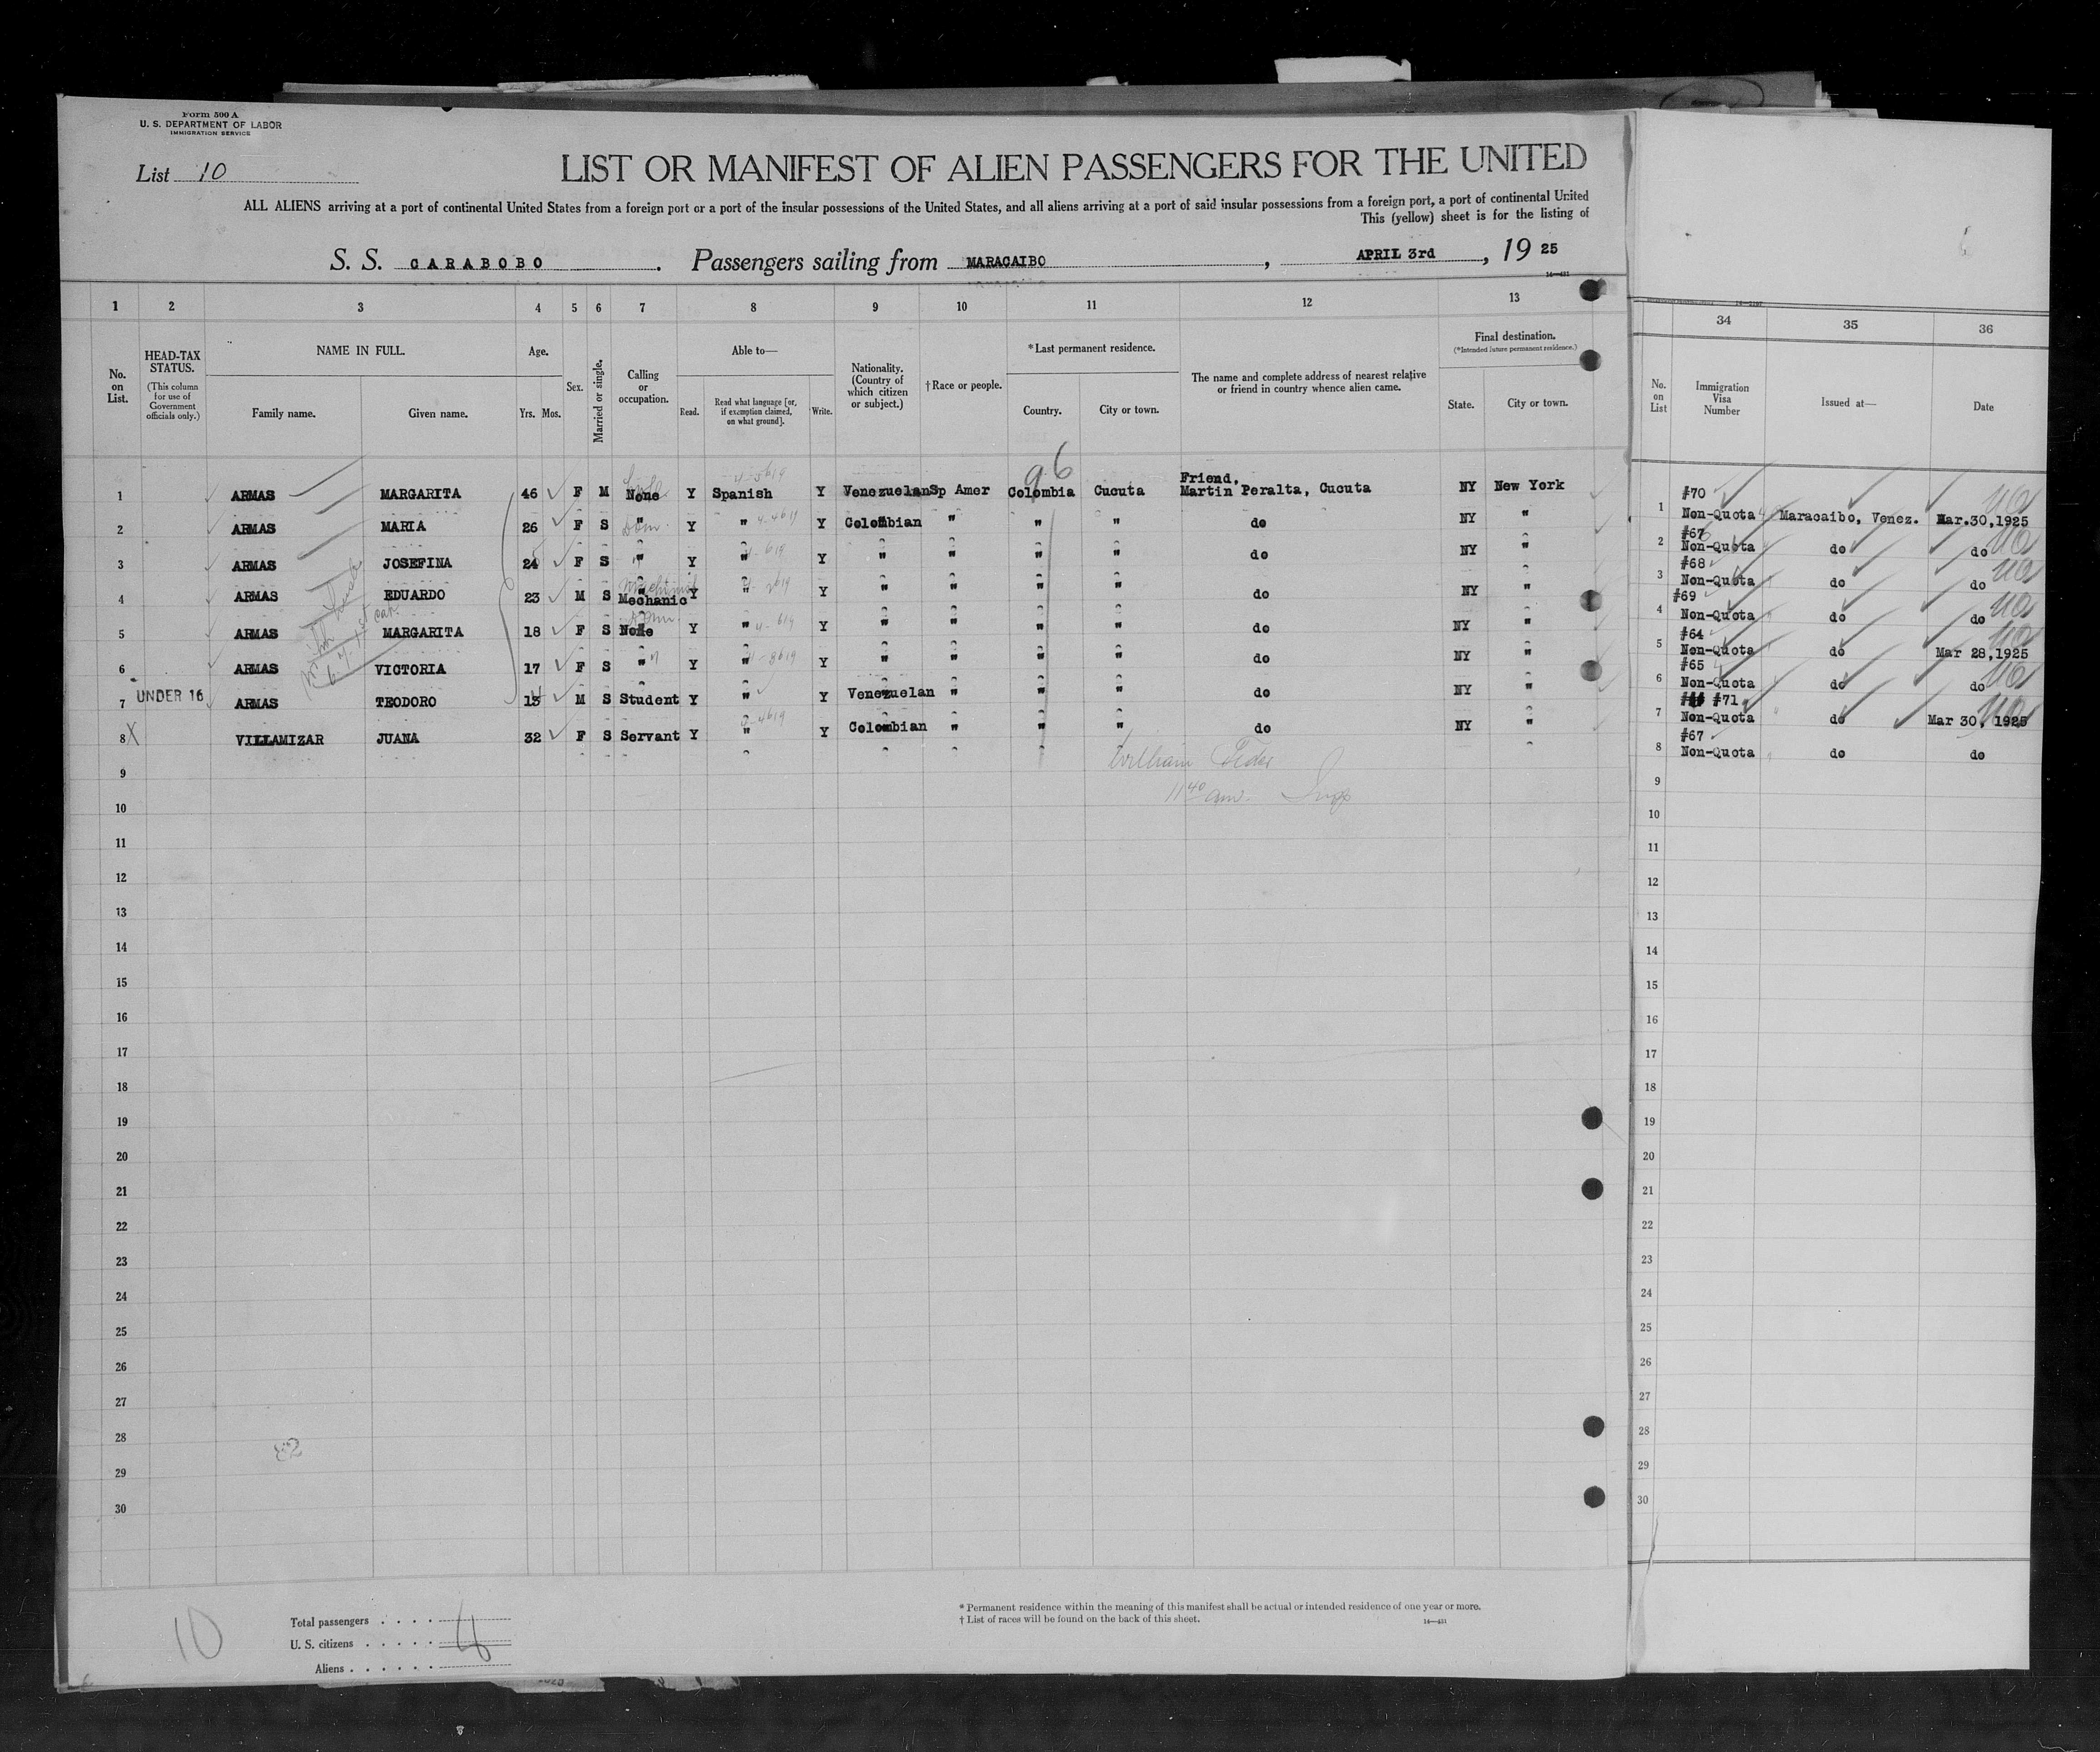 Form 500 A
U. S. DEPARTMENT OF LABOR
IMMIGRATION SERVICE
List 10
LIST OR MANIFEST OF ALIEN PASSENGERS FOR THE UNITED
ALL ALIENS arriving at a port of continental United States from a foreign port or a port of the insular possessions of the United States, and all aliens arriving at a port of said insular possessions from a foreign port, a port of continental United
This (yellow) sheet is for the listing of
S. S. CARABOBO. Passengers sailing from MARACAIBO, APRIL 3rd, 19 25
14—431
1 2 3 4 5 6 7 8 9 10 11 12 13 34 35 36
No. on List.
HEAD-TAX STATUS.
(This column for use of Government officials only.)
NAME IN FULL.
Family name. Given name.
Age.
Yrs. Mos.
Sex.
Married or single.
Calling or occupation.
Able to—
Read. Read what language [or, if exemption claimed, on what ground]. Write.
Nationality. (Country of which citizen or subject.)
†Race or people.
*Last permanent residence.
Country. City or town.
The name and complete address of nearest relative or friend in country whence alien came.
Final destination.
(*Intended future permanent residence.)
State. City or town.
No. on List
Immigration Visa Number
Issued at—
Date
96
1 ARMAS MARGARITA 46 F M None Y Spanish Y Venezuelan Sp Amer Colombia Cucuta Friend, Martin Peralta, Cucuta NY New York 1 #70 Non-Quota Maracaibo, Venez. Mar.30,1925
2 ARMAS MARIA 26 F S " Y " Y Colombian " " " do NY " 2 #67 Non-Quota do do
3 ARMAS JOSEFINA 24 F S " Y " Y " " " " do NY " 3 #68 Non-Quota do do
4 ARMAS EDUARDO 23 M S Mechanic Y " Y " " " " do NY " 4 #69 Non-Quota do do
5 ARMAS MARGARITA 18 F S None Y " Y " " " " do NY " 5 #64 Non-Quota do Mar 28,1925
6 ARMAS VICTORIA 17 F S " Y " Y " " " " do NY " 6 #65 Non-Quota do do
7 UNDER 16 ARMAS TEODORO M S Student Y " Y Venezuelan " " " do NY " 7 #71 Non-Quota do Mar 30, 1925
8 X VILLAMIZAR JUANA 32 F S Servant Y " Y Colombian " " " do NY " 8 #67 Non-Quota do do
William
11 40 am. Insp
9 9
10 10
11 11
12 12
13 13
14 14
15 15
16 16
17 17
18 18
19 19
20 20
21 21
22 22
23 23
24 24
25 25
26 26
27 27
28 28
29 29
30 30
10
Total passengers . . . .
U. S. citizens . . . . .
Aliens . . . . . .
* Permanent residence within the meaning of this manifest shall be actual or intended residence of one year or more.
† List of races will be found on the back of this sheet.
14—431